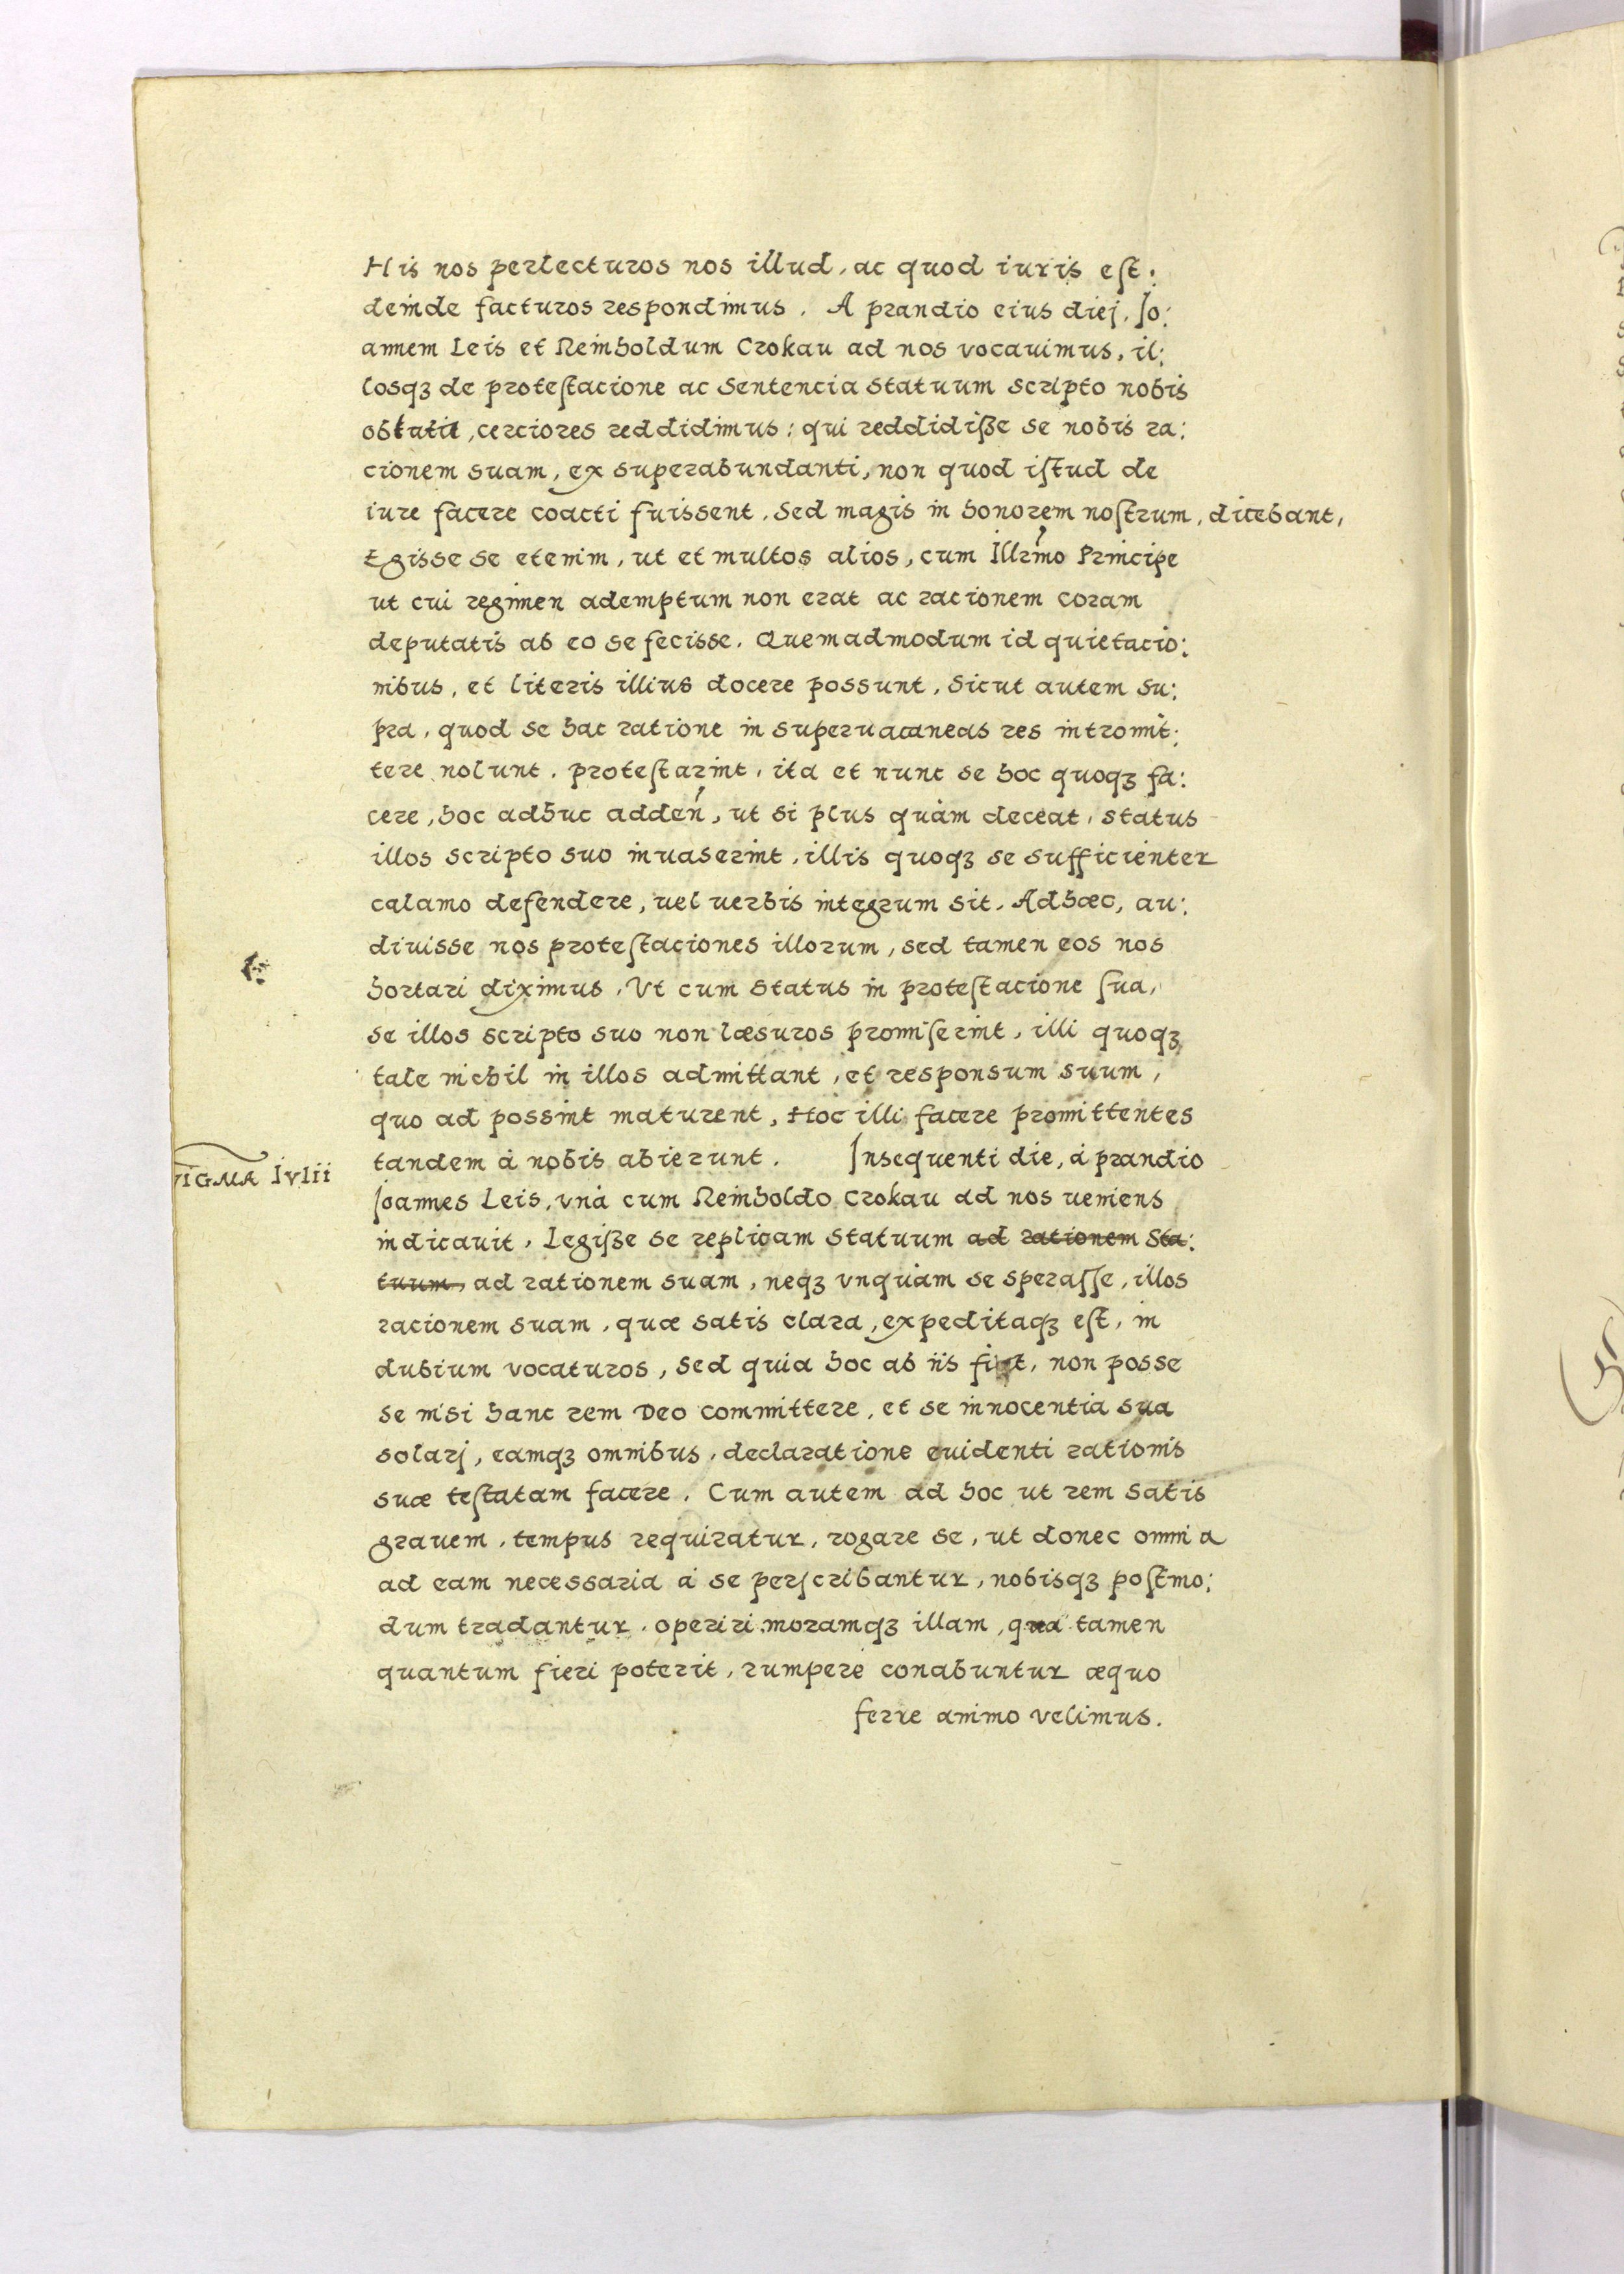 His nos perlecturos nos illud, ac quod iuris est:
deinde facturos respondimus. A prandio eius diej, Jo:
annem Leis et Reinholdum Crokau ad nos vocauimus, il:
losqȝ de protestacione ac sentencia statuum scripto nobis
oblatis, cerciores reddidimus: qui reddidiße se nobis ra:
cionem suam, ex superabundanti, non quod istud de
iure facere coacti fuissent, sed magis in honorem nostrum, dicebant,
Egisse se etenim, ut et multos alios, cum Illrmo Principe
ut cui regimen ademptum non erat ac racionem coram
deputatis ab eo se fecisse. Quemadmodum id quietacio:
nibus, et literis illius docere possunt, sicut autem su:
pra, quod se hac ratione in superuacaneas res intromit:
tere nolunt, protestarint, ita et nunc se hoc quoqȝ fa:
cere, hoc adhuc adden, ut si plus quàm deceat, status
illos scripto suo inuaserint, illis quoqȝ se sufficienter
calamo defendere, uel uerbis integrum sit. Adhæc, au:
diuisse nos protestaciones illorum, sed tamen eos nos
hortari diximus, Vt cum status in protestacione sua,
se illos scripto suo non læsuros promiserint, illi quoqȝ
tale nichil in illos admittant, et responsum suum,
quo ad possint maturent, Hoc illi facere promittentes
tandem à nobis abierunt. Insequenti die, à prandio
VIGMA Ivlii
Joannes Leis, vnà cum Reinholdo Crokau ad nos ueniens
indicauit, Legiße se replicam statuum ad rationem Sta:
tuum, ad rationem suam, neqȝ vnquàm se sperasse, illos
racionem suam, quæ satis clara, expeditaqȝ est, in
dubium vocaturos, sed quia hoc ab iis fiat, non posse
se nisi hanc rem Deo committere, et se innocentia sua
solarj, eamqȝ omnibus, declaratione euidenti rationis
suæ testatam facere. Cum autem ad hoc ut rem satis
grauem, tempus requiratur, rogare se, ut donec omnia
ad eam necessaria à se perscribantur, nobisqȝ postmo:
dum tradantur, operiri moramqȝ illam, quà tamen
quantum fieri poterit, rumpere conabuntur æquo
ferre animo velimus.